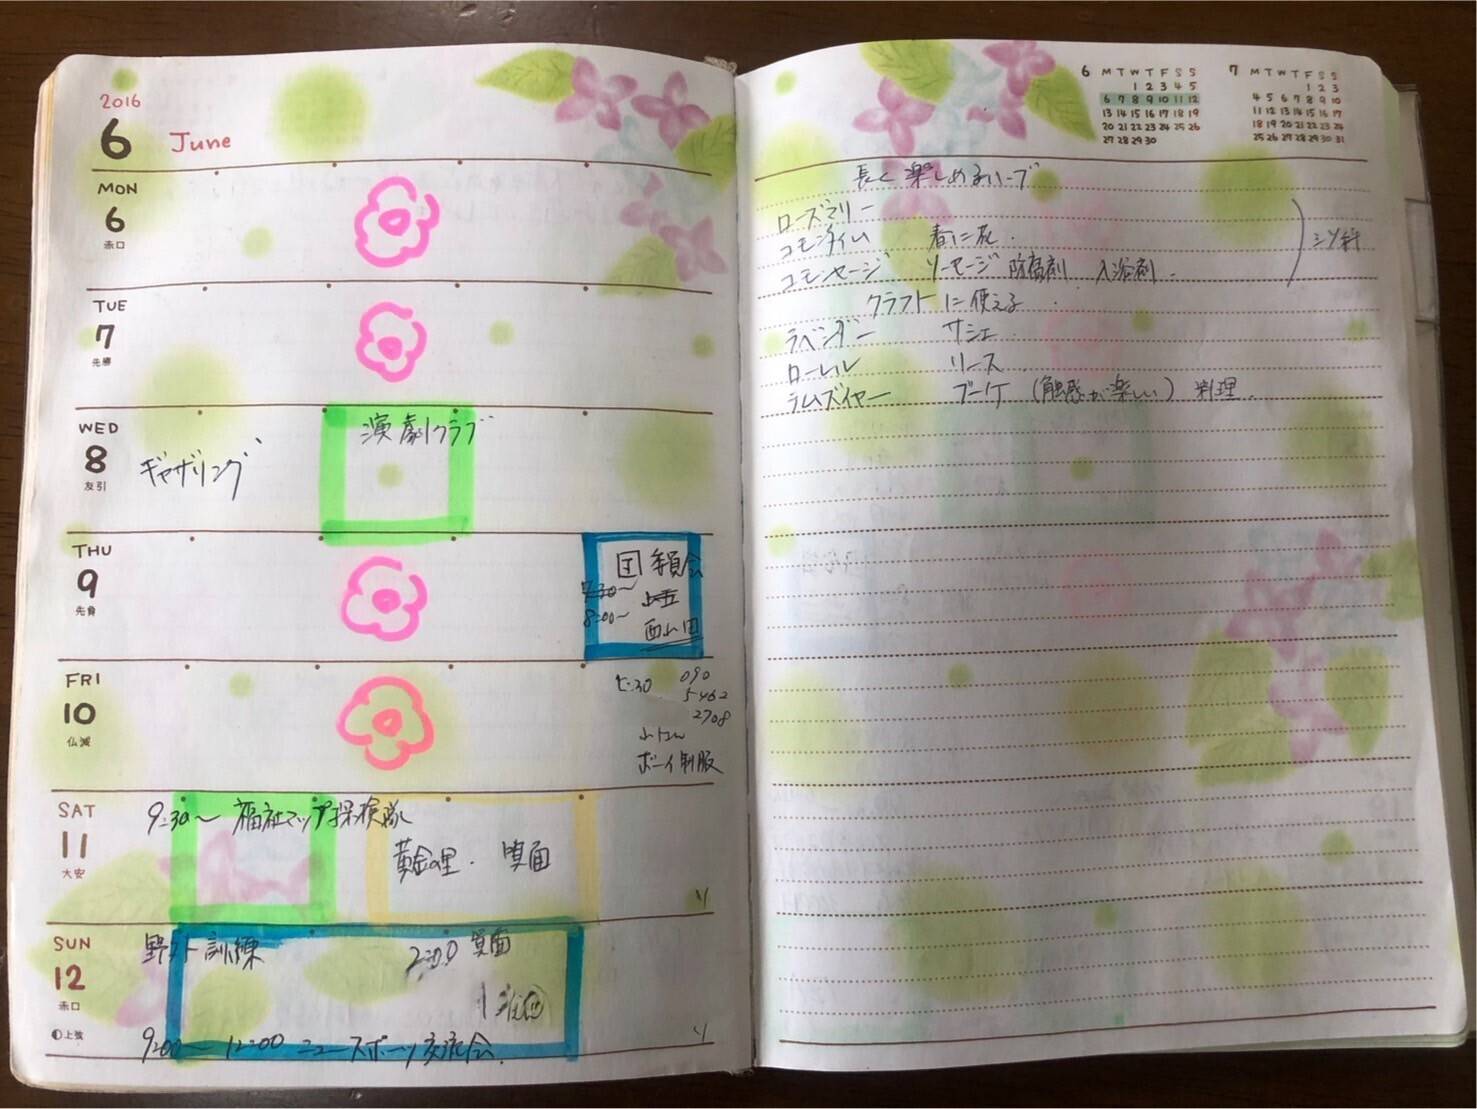 2016
6 June
MON
6
赤口
TUE
7
先勝
WED
8
友引
ギャザリング
演劇クラブ
THU
9
先負
団委員会
7:30〜
8:00〜
西山田
FRI
10
仏滅
7:30
090
5462
2708
ボーイ制服
SAT
11
大安
9:30〜 福祉マップ探検隊
黄金の里・箕面
SUN
12
赤口
上弦
野スト訓練
2:00 箕面
9:00〜12:00 ニュースポーツ交流会
6 M T W T F S S
1 2 3 4 5
6 7 8 9 10 11 12
13 14 15 16 17 18 19
20 21 22 23 24 25 26
27 28 29 30
7 M T W T F S S
1 2 3
4 5 6 7 8 9 10
11 12 13 14 15 16 17
18 19 20 21 22 23 24
25 26 27 28 29 30 31
長く楽しめるハーブ
ローズマリー
コモンタイム 春に花.
コモンセージ ソーセージ 防腐剤 入浴剤.
シソ科
クラフトに使える.
ラベンダー サシェ.
ローレル リース
ラムズイヤー ブーケ (触感が楽しい) 料理.